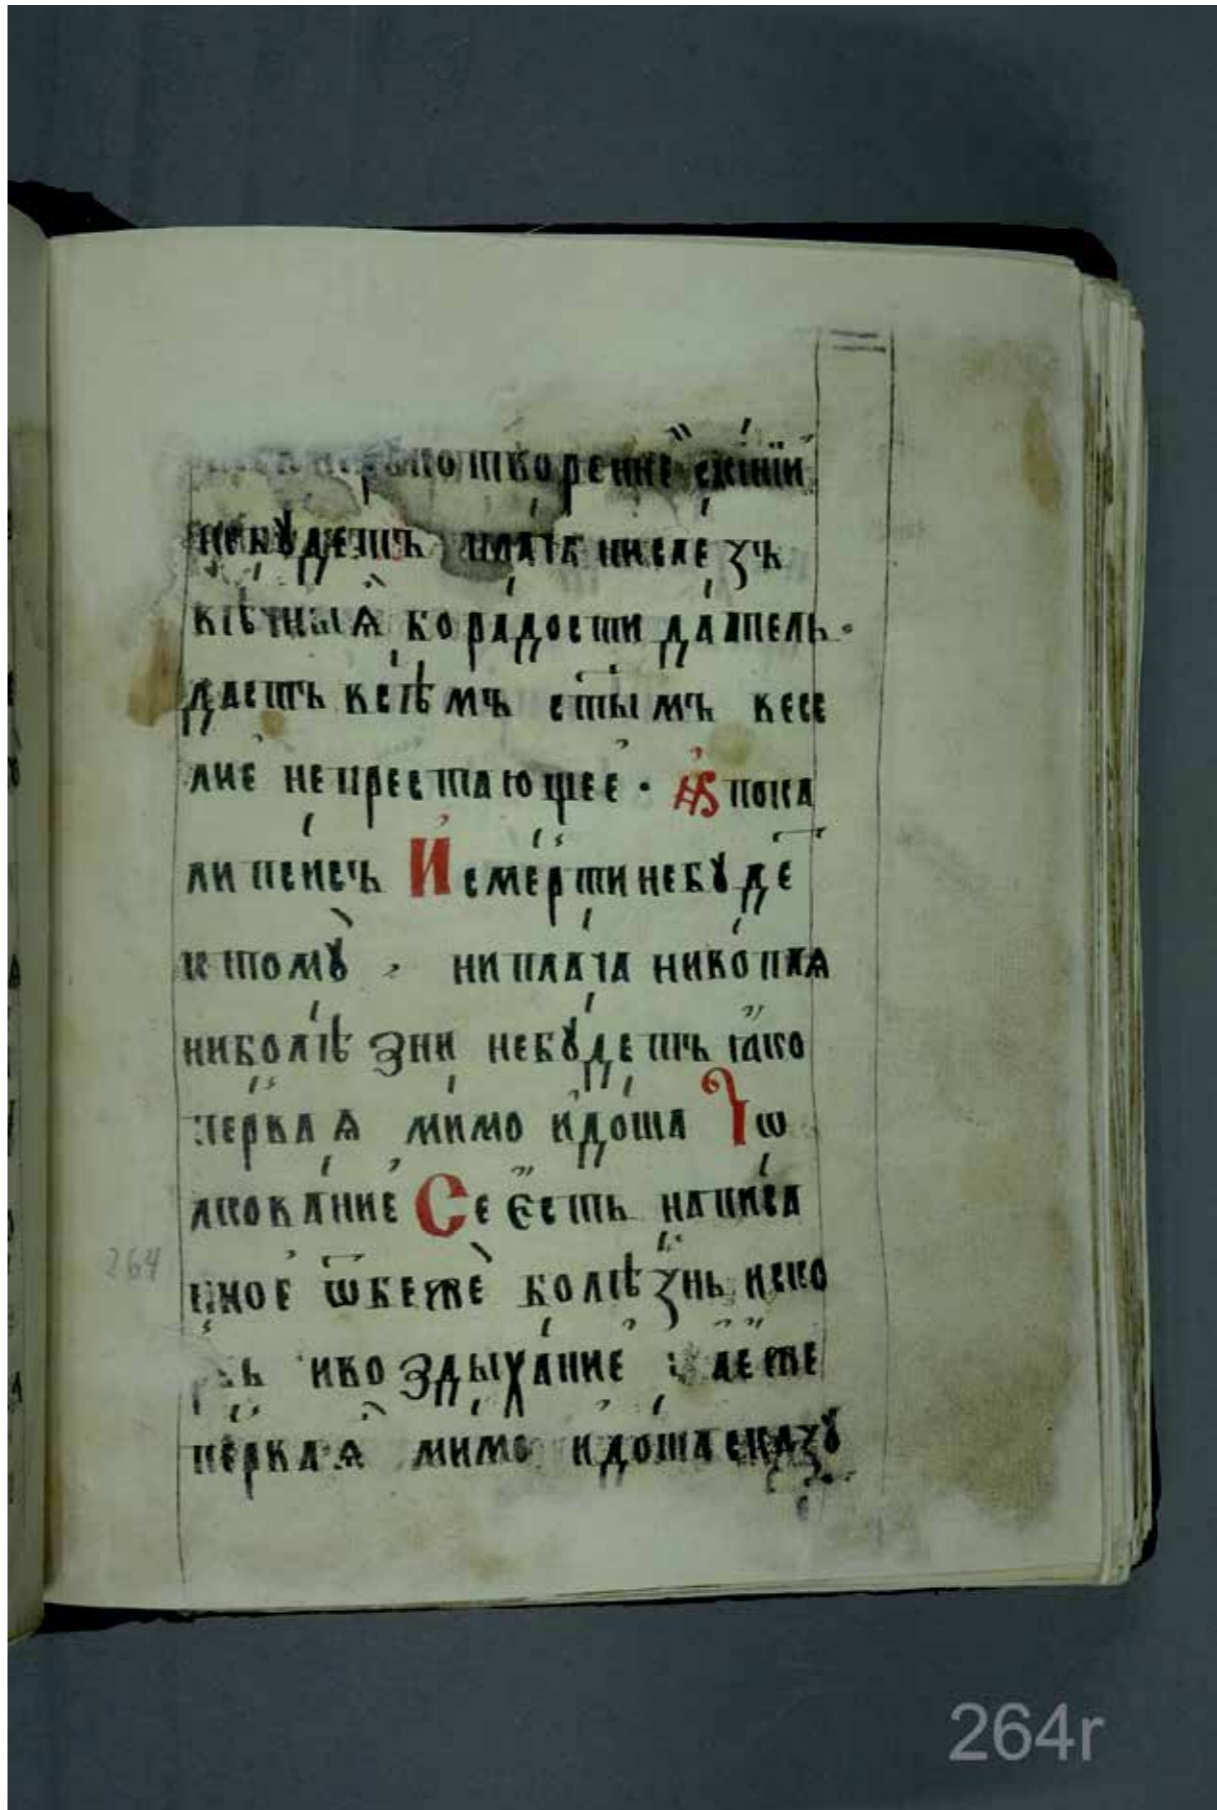 нерꙋкотворенне скїнїи
небꙋдетъ плачь нислезъ
вѣчныѧворадости даатель·
даетъ всѣмъ стымъ весе
лие непрестающее · апока
липсисъ И смерти небꙋде
ктомꙋ , ниплача нивоплѧ
ниболѣзни небꙋдетъ ꙗко
перваѧ мимо идоша Іѡ
лкованиеСе єсть написа
ное ѿбеже болѣзнь иско
рбь ивоздыхание идеже
перваѧ мимо идоша сказꙋ
264
264r